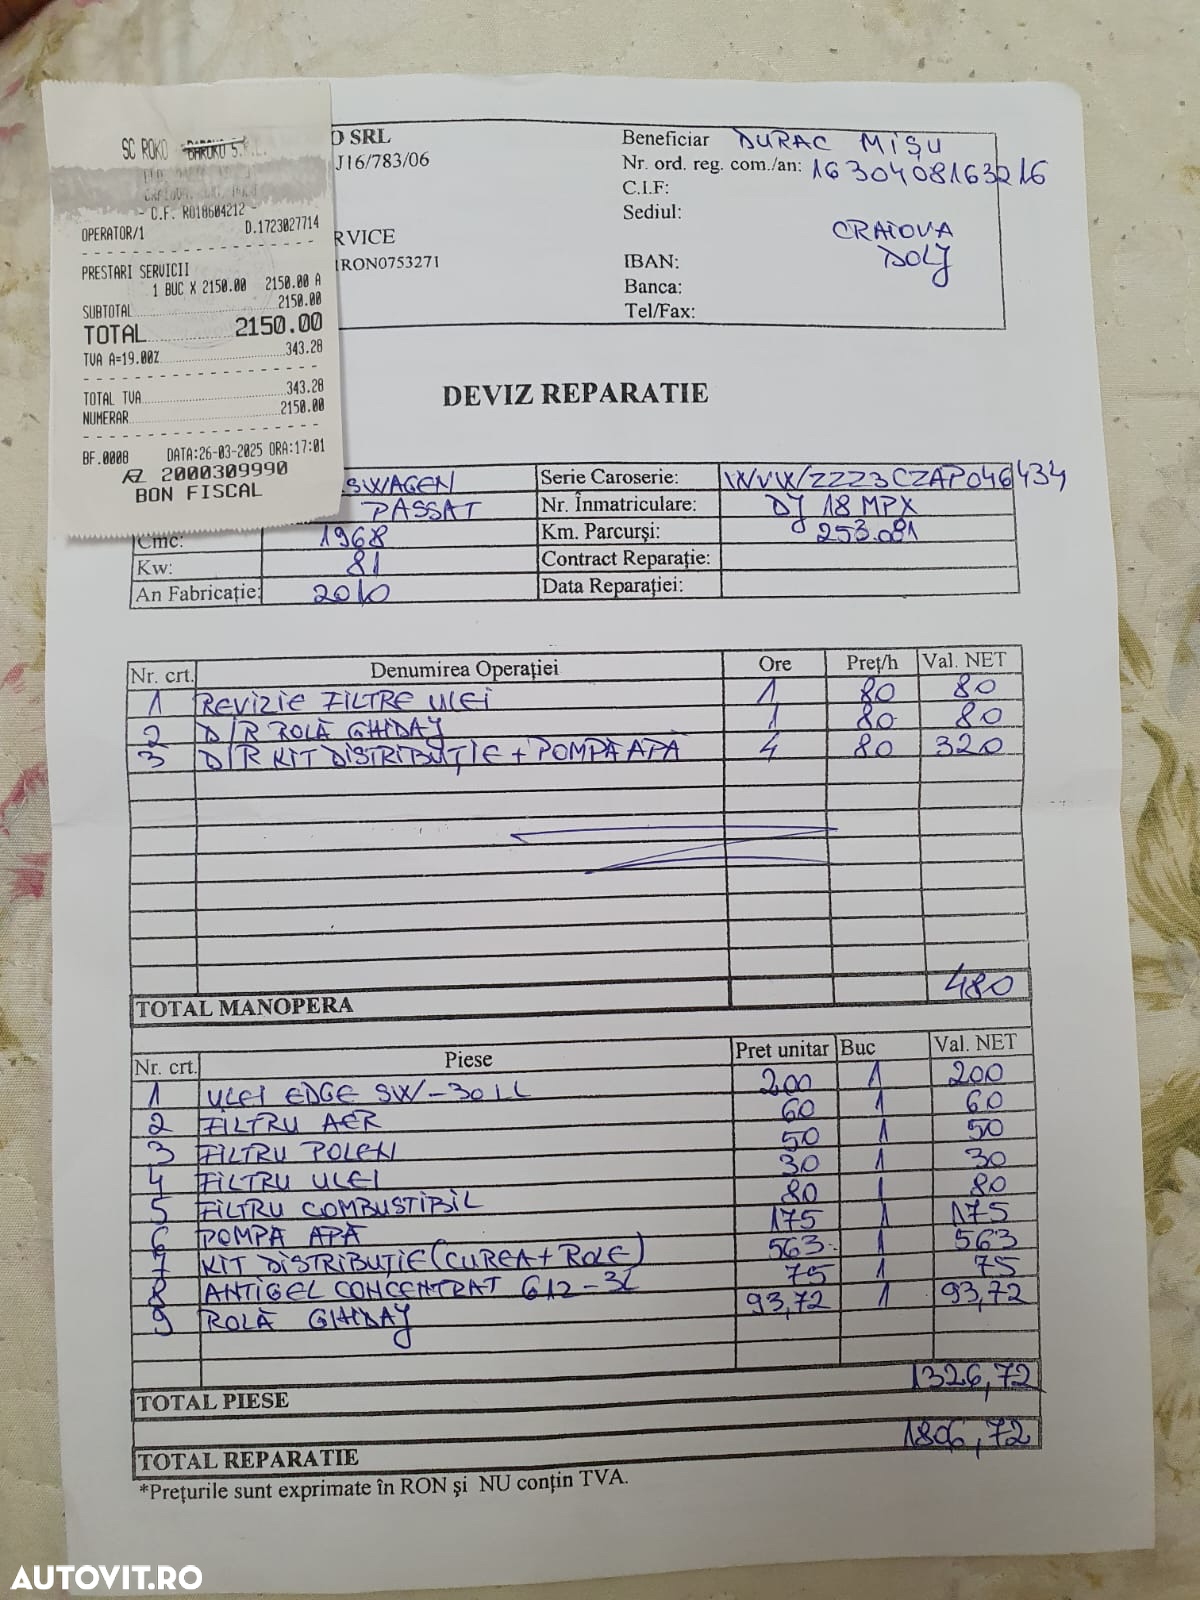 SC ROKO
- C.F. RO18604212 -
OPERATOR/1 D.1723027714
PRESTARI SERVICII
1 BUC X 2150.00 2150.00 A
SUBTOTAL 2150.00
TOTAL 2150.00
TVA A=19.00% 343.28
TOTAL TVA 343.28
NUMERAR 2150.00
BF.0008 DATA:26-03-2025 ORA:17:01
2000309990
BON FISCAL
O SRL
J16/783/06
RVICE
RON0753271
Beneficiar DURAC MIȘU
Nr. ord. reg. com./an: 1630408163216
C.I.F:
Sediul:
CRAIOVA
DOLJ
IBAN:
Banca:
Tel/Fax:
DEVIZ REPARATIE
SWAGEN Serie Caroserie: WVWZZZ3CZAP046434
PASSAT Nr. Înmatriculare: DJ 18 MPX
Cmc: 1968 Km. Parcurşi: 253.081
Kw: 81 Contract Reparaţie:
An Fabricaţie: 2010 Data Reparaţiei:
Nr. crt. Denumirea Operaţiei Ore Preţ/h Val. NET
1 REVIZIE FILTRE ULEI 1 80 80
2 D/R ROLĂ GHIDAJ 1 80 80
3 D/R KIT DISTRIBUȚIE + POMPĂ APĂ 4 80 320
TOTAL MANOPERA 480
Nr. crt. Piese Pret unitar Buc Val. NET
1 ULEI EDGE 5W-30 LL 200 1 200
2 FILTRU AER 60 1 60
3 FILTRU POLEN 50 1 50
4 FILTRU ULEI 30 1 30
5 FILTRU COMBUSTIBIL 80 1 80
6 POMPĂ APĂ 175 1 175
7 KIT DISTRIBUȚIE (CUREA + ROLE) 563 1 563
8 ANTIGEL CONCENTRAT G12-3L 75 1 75
9 ROLĂ GHIDAJ 93,72 1 93,72
TOTAL PIESE 1326,72
TOTAL REPARATIE 1806,72
*Preţurile sunt exprimate în RON şi NU conţin TVA.
AUTOVIT.RO